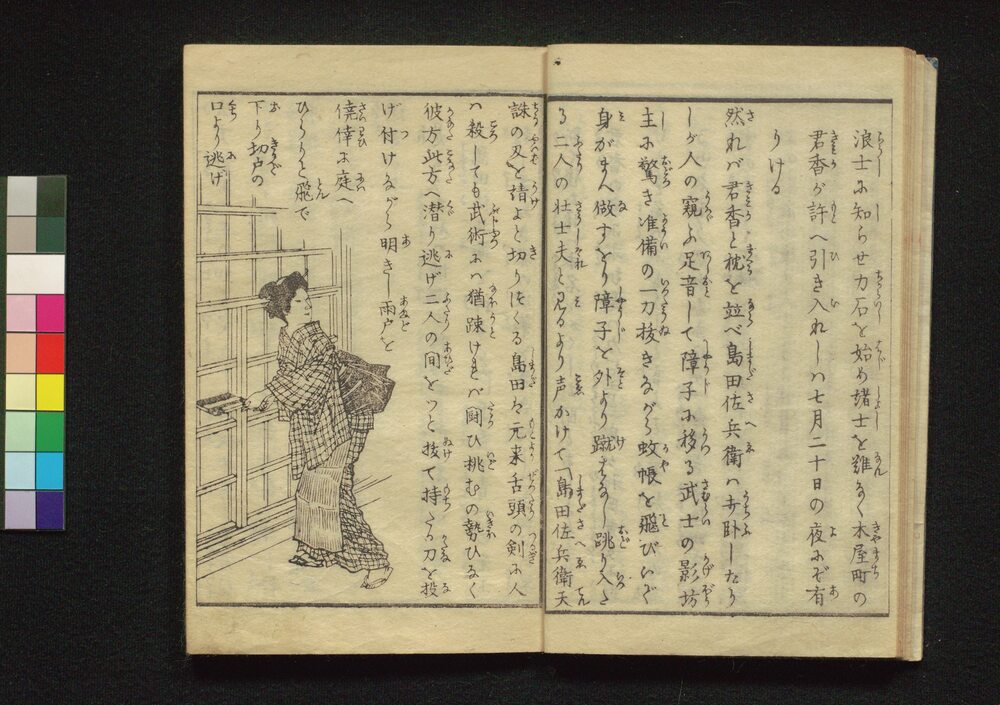 浪士に知らせ力石を始め諸士を難なく木屋町の
君香が許へ引き入れしハ七月二十日の夜にぞ有
りける
然れバ君香と枕を並べ島田佐兵衛ハ打臥したり
しが人の窺ふ足音して障子に移る武士の影坊
主に驚き准備の一刀抜きながら蚊帳を飛びいで
身がまへ做すをり障子を外より蹴はなし跳り入た
る二人の壮士夫と見るより声かけて「島田佐兵衛天
誅の刃を請よと切りつくる島田は元来舌頭の剣に人
ハ殺しても武術にハ猶疎ければ闘ひ挑むの勢ひなく
彼方此方へ潜り逃げ二人の間をツと抜て持たる刀を投
げ付けながら明きし雨戸を
僥倖に庭へ
ひらりと飛で
下り切戸の
口より逃げ